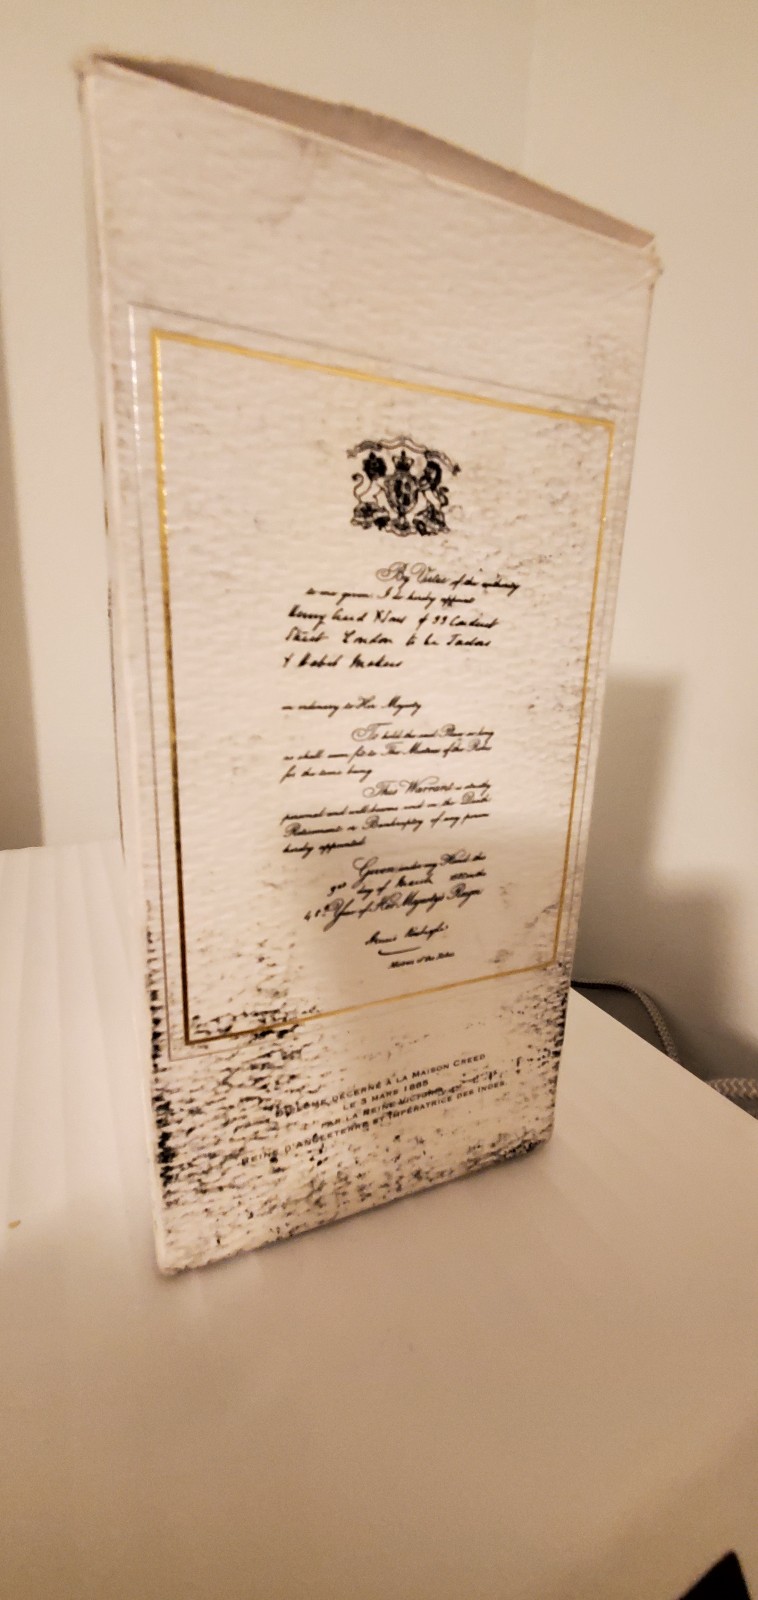 By Virtue of the authority
to me given I do hereby appoint
Henry Creed & Sons of 33 Conduit
Street London to be Tailors
& Habit Makers
in ordinary to Her Majesty
To hold the said Place so long
as shall seem fit to The Mistress of the Robes
for the time being
This Warrant is strictly
personal and will become void on the Death
Retirement or Bankruptcy of any person
hereby appointed
Given under my Hand this
3rd day of March
Year of Her Majesty's Reign
Mistress of the Robes
Diplome décerné à la Maison Creed
le 3 mars 1885
par la Reine Victoria
Reine d'Angleterre et Impératrice des Indes